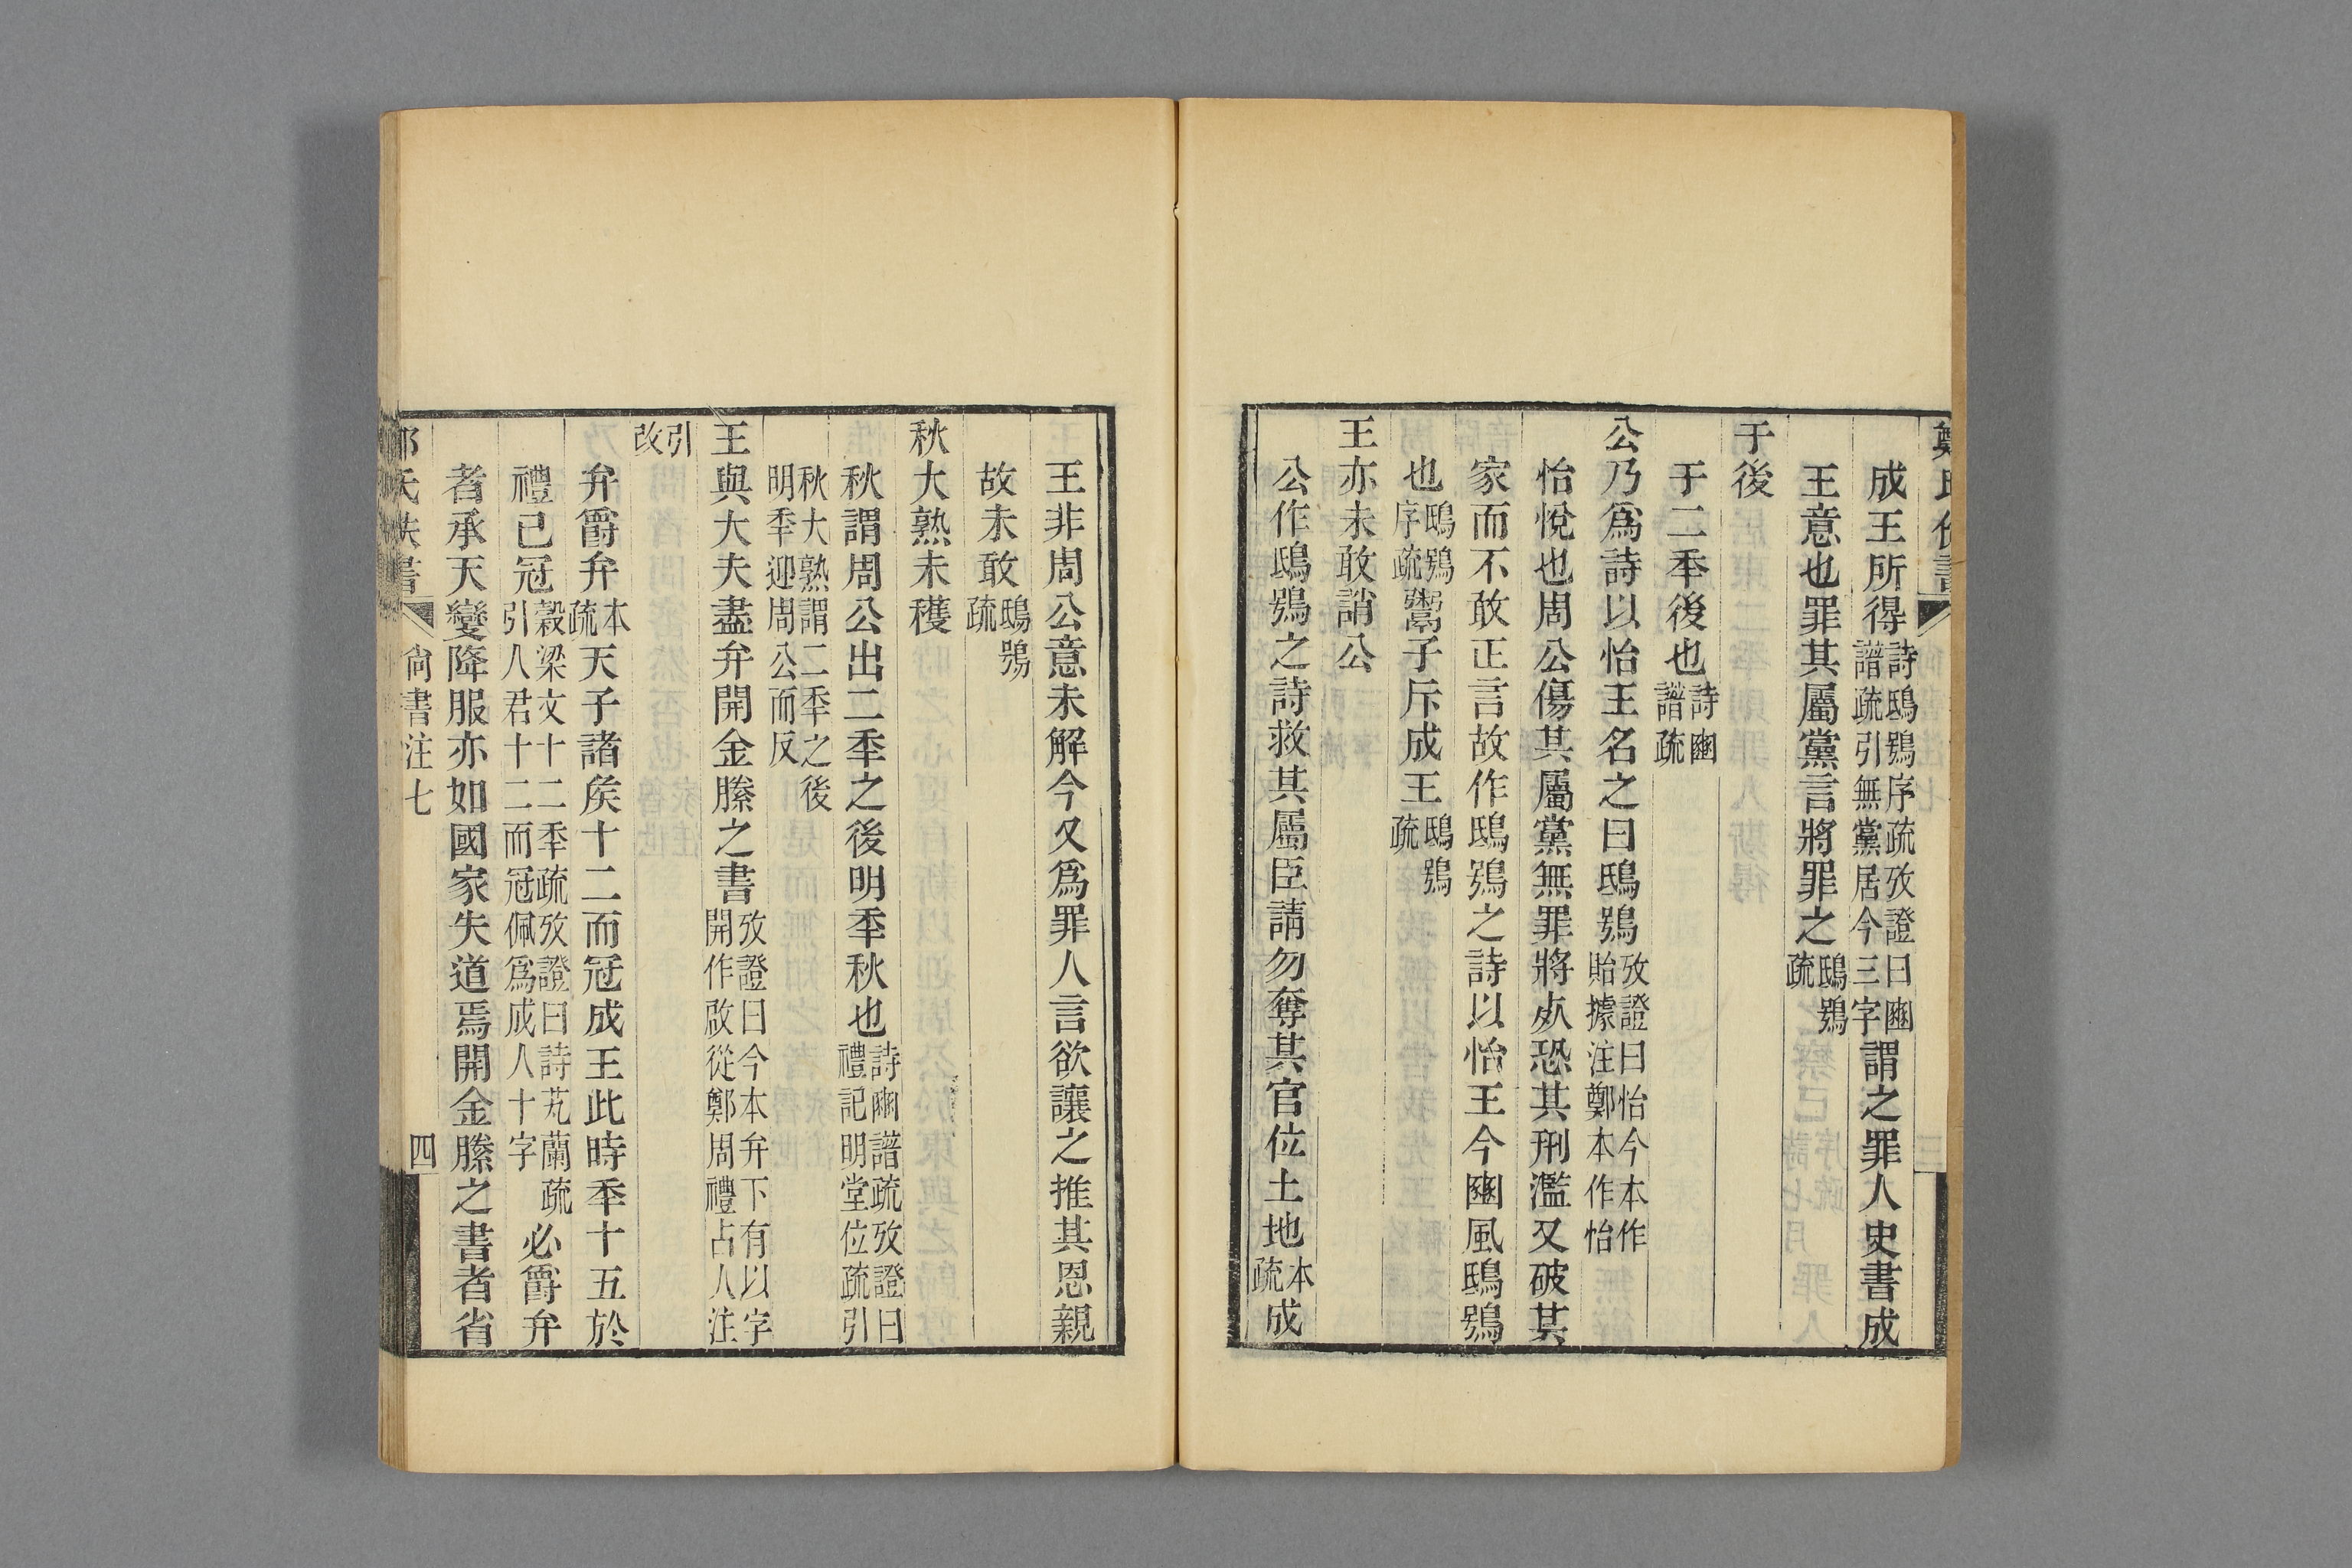 成王所得詩鴟鴞序疏攷證曰豳譜疏引無黨居今三字謂之罪人史書成
王意也罪其屬黨言將罪之鴟鴞疏
于後
于二秊後也詩豳譜疏
公乃爲詩以怡王名之曰鴟鴞攷證曰怡今本作貽據注鄭本作怡
怡悅也周公傷其屬黨無罪將𣦸恐其刑濫又破其
家而不敢正言故作鴟鴞之詩以怡王今豳風鴟鴞
也鴟鴞序疏鬻子斥成王鴟鴞疏
王亦未敢誚公
公作鴟鴞之詩救其屬臣請勿奪其官位土地本疏成
王非周公意未解今又爲罪人言欲讓之推其恩親
故未敢鴟鴞疏
秋大熟未穫
秋謂周公出二秊之後明秊秋也詩豳譜疏攷證曰禮記明堂位疏引
秋大熟謂二秊之後明秊迎周公而反
王與大夫盡弁開金縢之書攷證曰今本弁下有以字開作啟從鄭周禮占人注
引改
弁爵弁本疏天子諸矦十二而冠成王此時秊十五於
禮已冠穀梁文十二秊疏攷證曰詩芄蘭疏引人君十二而冠佩爲成人十字必爵弁
者承天變降服亦如國家失道焉開金縢之書者省
尙書注七
四